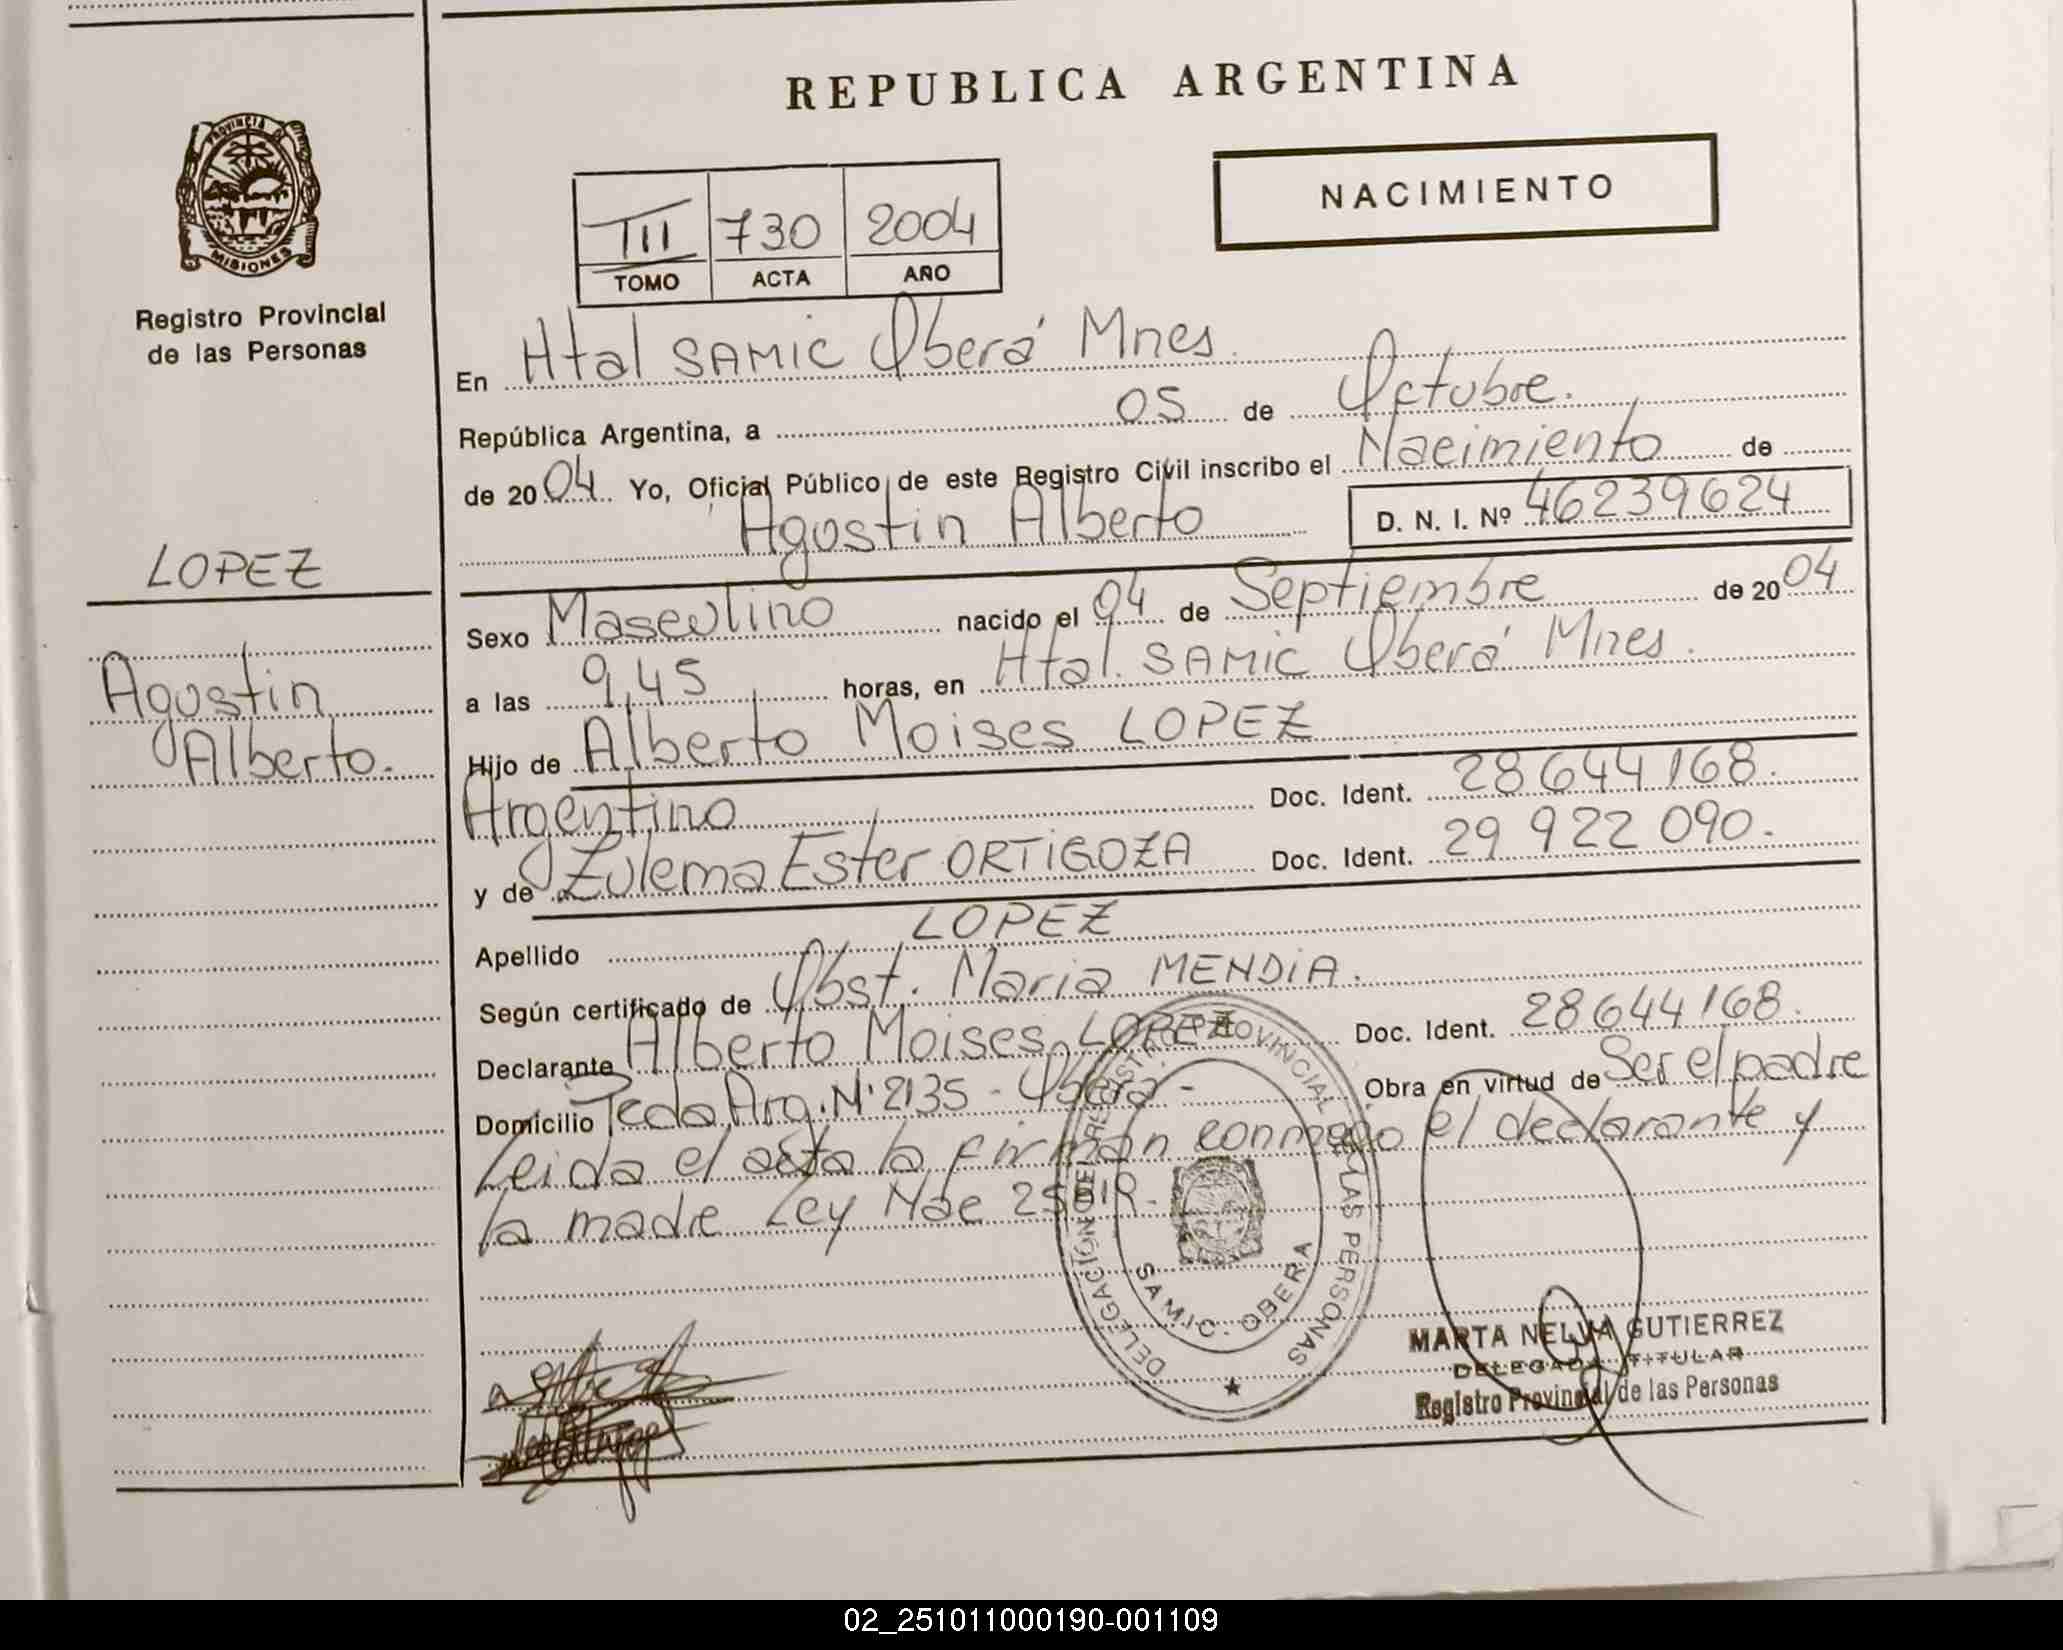 REPUBLICA ARGENTINA
NACIMIENTO
PROVINCIA DE
MISIONES
Registro Provincial
de las Personas
III 730 2004
TOMO ACTA AÑO
En Htal SAMIC Oberá Mnes.
República Argentina, a 05 de Octubre.
de 2004 Yo, Oficial Público de este Registro Civil inscribo el Nacimiento de
Agustin Alberto D. N. I. Nº 46239624
LOPEZ
Agustin
Alberto.
Sexo Masculino nacido el 04 de Septiembre de 2004
a las 9,45 horas, en Htal. SAMIC Oberá Mnes.
Hijo de Alberto Moises LOPEZ
Argentino Doc. Ident. 28644168.
y de Zulema Ester ORTIGOZA Doc. Ident. 29 922 090.
Apellido LOPEZ
Según certificado de Obst. Maria MENDIA.
Declarante Alberto Moises LOPEZ Doc. Ident. 28644168.
Domicilio Arg. Nº 2135 - Oberá - Obra en virtud de Ser el padre
Leida el acta la firman conmigo el declarante y
la madre Ley Nac
DELEGACIÓN DEL REGISTRO PROVINCIAL DE LAS PERSONAS
SAMIC. OBERA
MARTA NELVA GUTIERREZ
DELEGADA TITULAR
Registro Provincial de las Personas
02_251011000190-001109